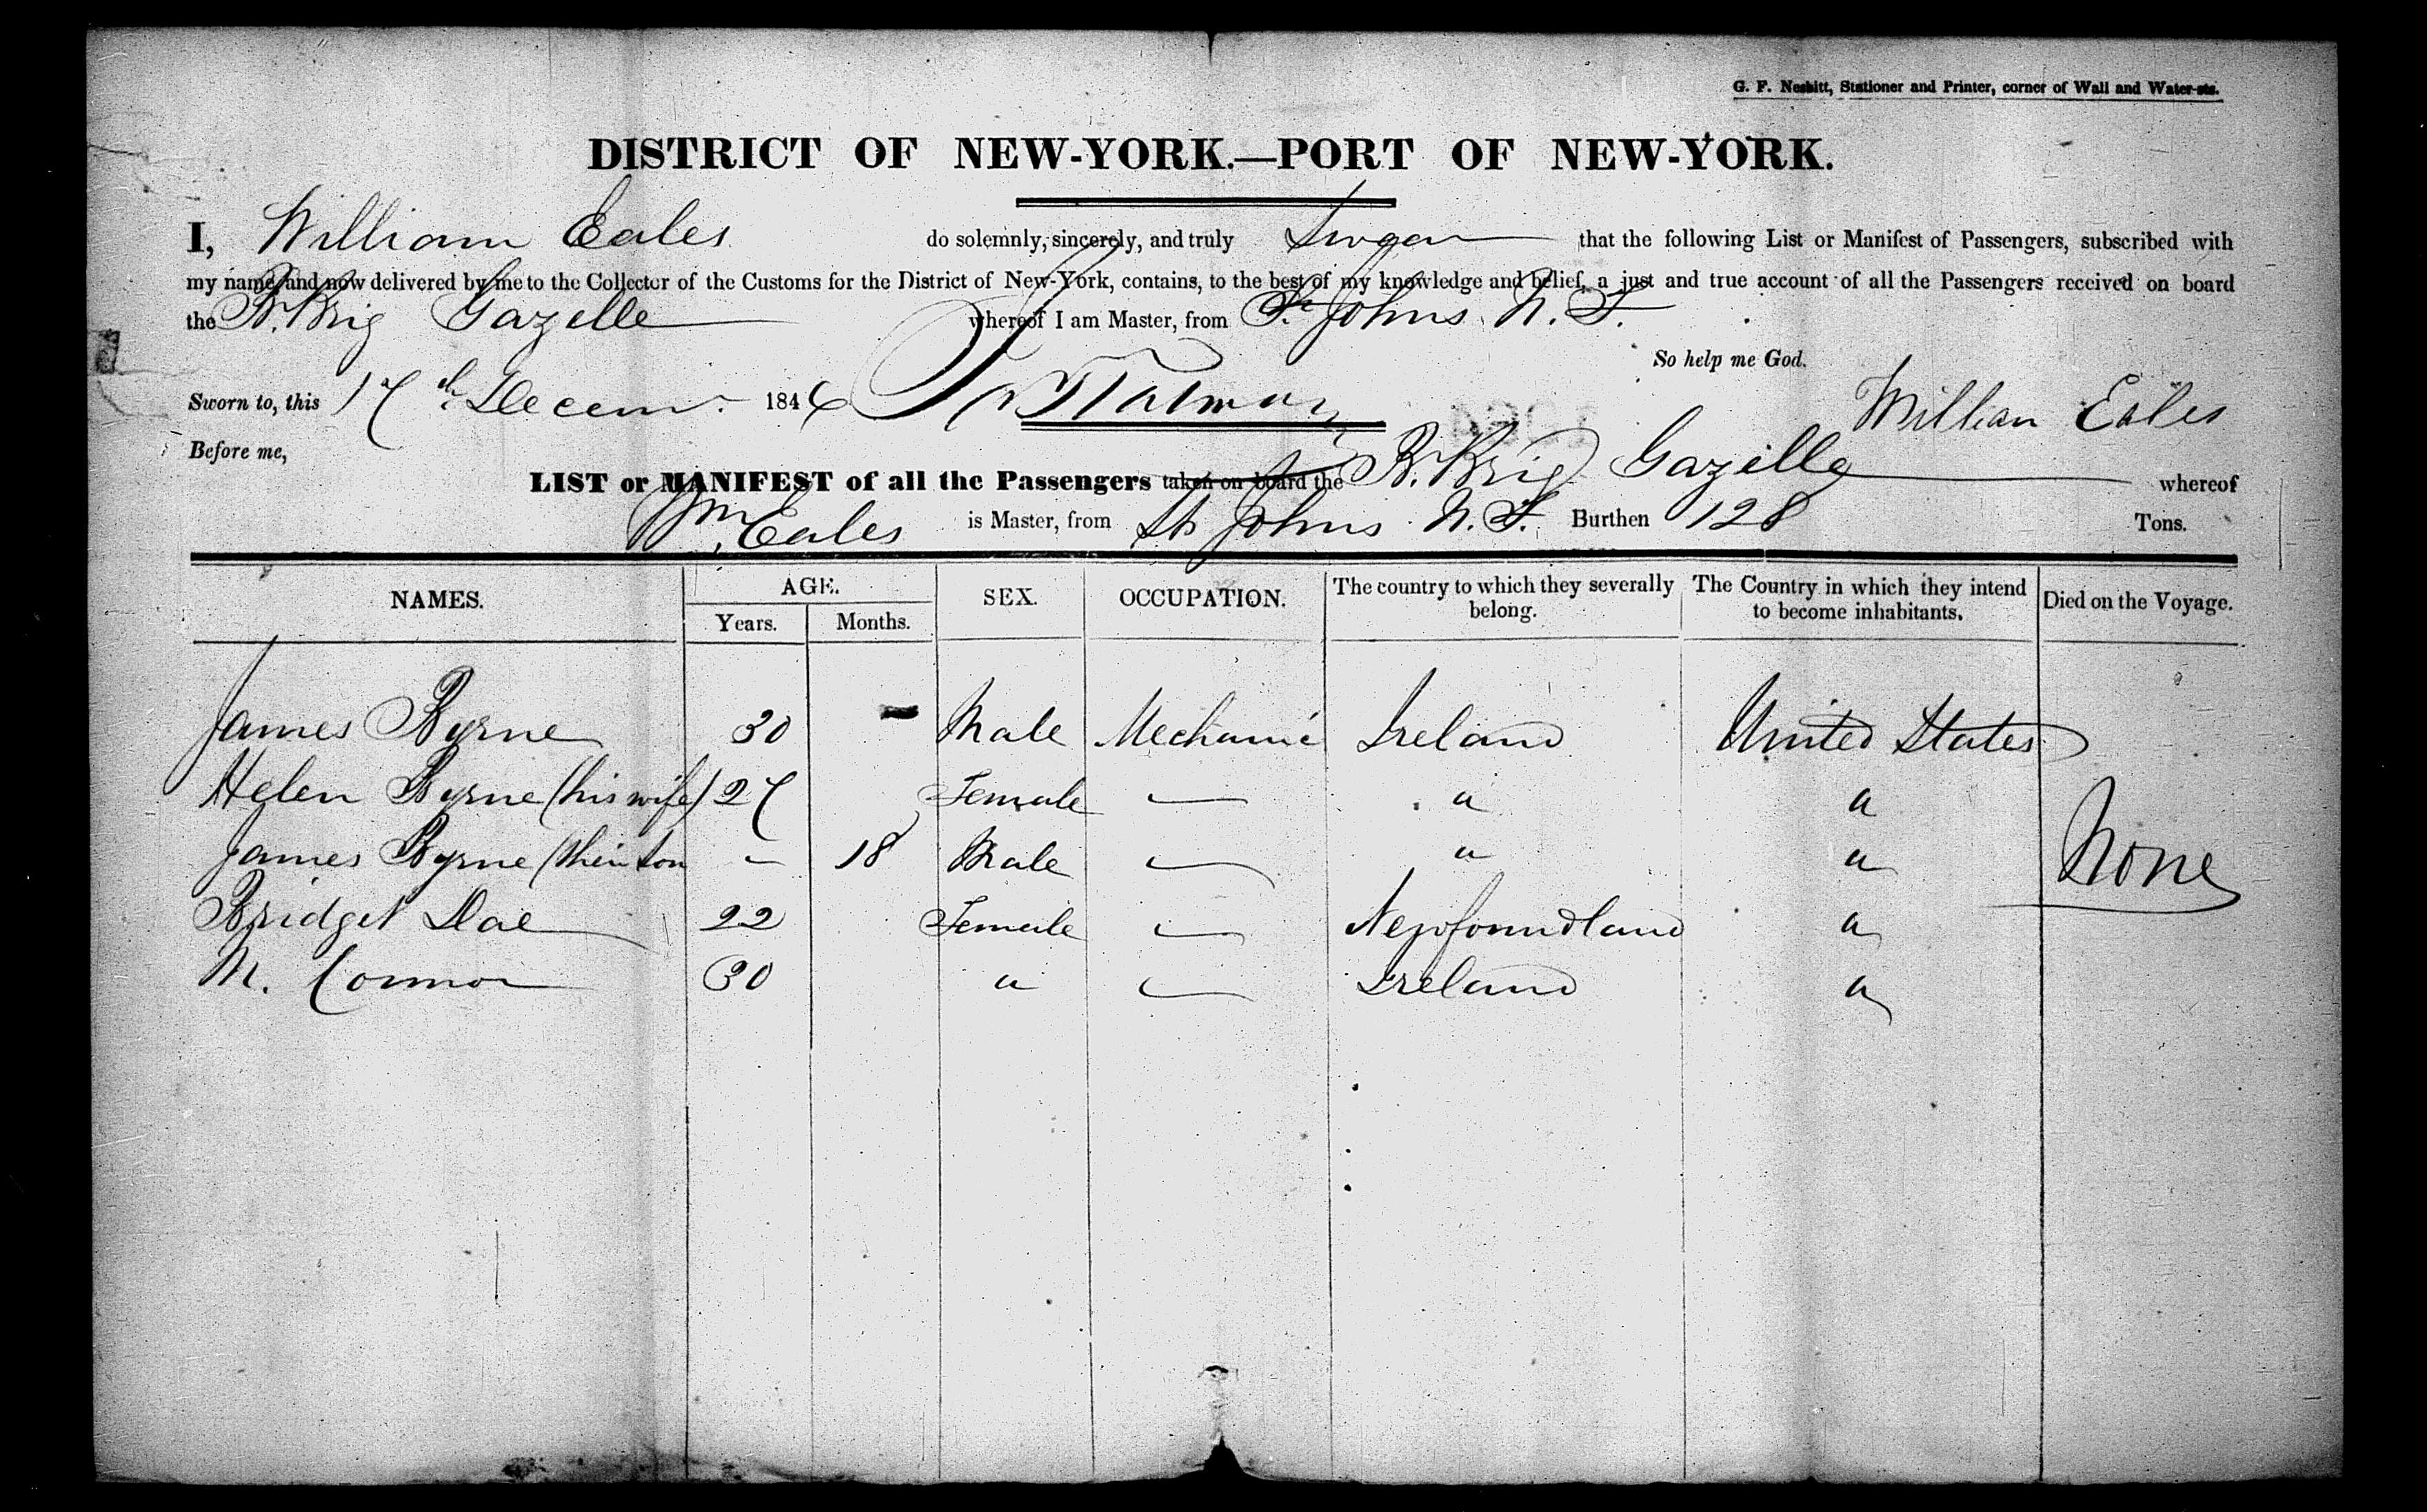 G. F. Nesbitt, Stationer and Printer, corner of Wall and Water-sts.
DISTRICT OF NEW-YORK.—PORT OF NEW-YORK.
I, William Eales do solemnly, sincerely, and truly Swear that the following List or Manifest of Passengers, subscribed with
my name, and now delivered by me to the Collector of the Customs for the District of New-York, contains, to the best of my knowledge and belief, a just and true account of all the Passengers received on board
the Br. Brig Gazelle whereof I am Master, from St Johns N. F.
So help me God.
Sworn to, this 17th Decemr. 1846 William Eales
Before me,
LIST or MANIFEST of all the Passengers taken on board the Br. Brig Gazelle whereof
Wm Eales is Master, from St Johns N. F. Burthen 128 Tons.
NAMES. AGE. SEX. OCCUPATION. The country to which they severally belong. The Country in which they intend to become inhabitants. Died on the Voyage.
Years. Months.
James Byrne 30 - Male Mechanic Ireland United States
Helen Byrne (his wife) 27 Female — " "
James Byrne (their son — 18 Male — " "
None
Bridget Dae 22 Female — Newfoundland "
M. Connor 30 " — Ireland "